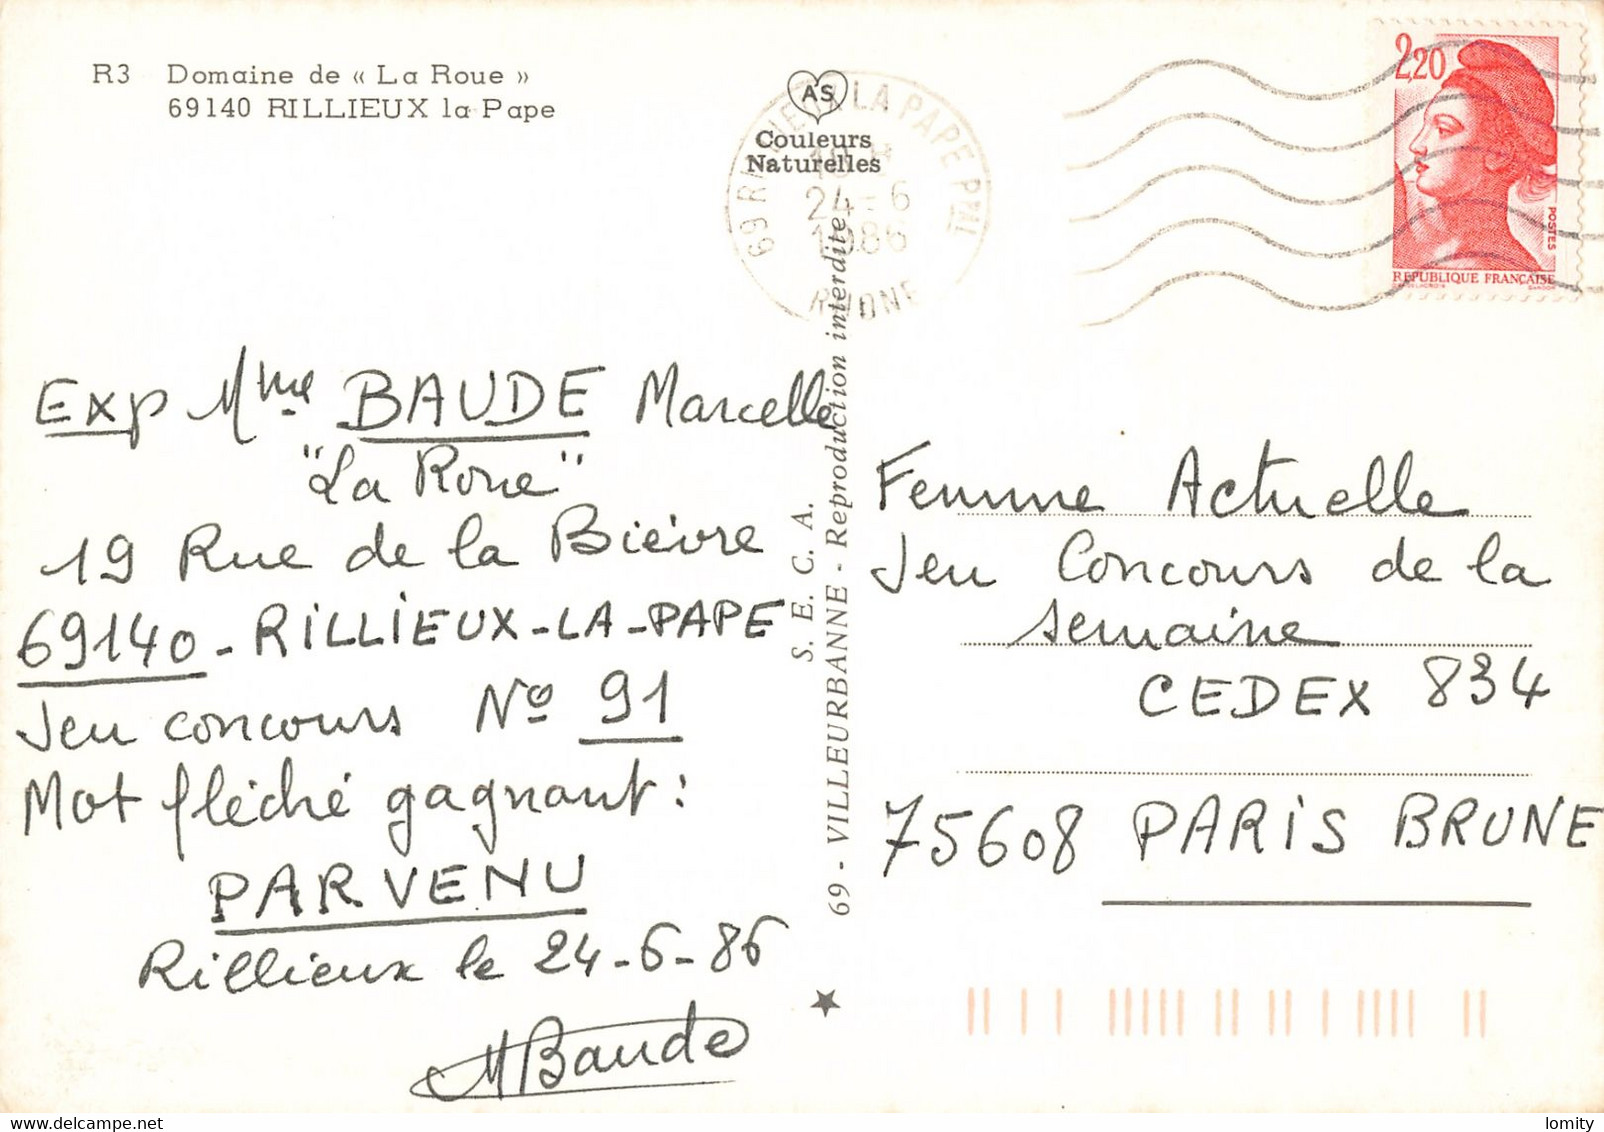 R3 Domaine de « La Roue »
69140 RILLIEUX la Pape
AS
Couleurs
Naturelles
69 RILLIEUX LA PAPE PPAL
18 H
24-6
1986
RHONE
2,20
POSTES
REPUBLIQUE FRANÇAISE
DELACROIX GANDON
Exp Mme BAUDE Marcelle
"La Roue"
19 Rue de la Bièvre
69140 - RILLIEUX-LA-PAPE
Jeu concours No 91
Mot fléché gagnant :
PARVENU
Rillieux le 24-6-86
M Baude
S. E. C. A.
69 - VILLEURBANNE - Reproduction interdite
Femme Actuelle
Jeu Concours de la
semaine
CEDEX 834
75608 PARIS BRUNE
lomity